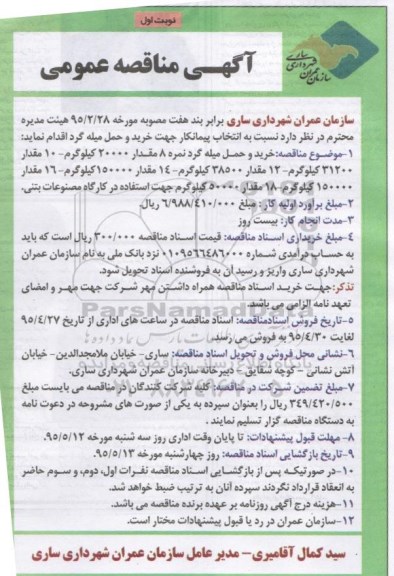 نوبت اول
سازمان عمران شهرداری ساری
آگهـی مناقصه عمومی
سازمان عمران شهرداری ساری برابر بند هفت مصوبه مورخه ۹۵/۲/۲۸ هیئت مدیره
محترم در نظر دارد نسبت به انتخاب پیمانکار جهت خرید و حمل میله گرد اقدام نماید:
۱-موضـوع مناقصه:خرید و حمـل میله گرد نمره ۸ مقـدار ۲۰۰۰۰ کیلوگرم-۱۰ مقدار
۳۱۲۰۰ کیلوگرم-۱۲ مقدار ۳۸۵۰۰ کیلوگرم-۱۴ مقدار ۱۵۰۰۰۰ کیلوگرم-۱۶ مقدار
۱۵۰۰۰۰ کیلوگرم-۱۸ مقدار ۵۰۰۰۰ کیلوگرم جهت استفاده در کارگاه مصنوعات بتنی.
۲-مبلغ برآورد اولیه کار: مبلغ ۶/۹۸۸/۴۱۰/۰۰۰ ریال.
۳-مدت انجام کار: بیست روز
۴-مبلغ خریداری اسـناد مناقصه: قیمت اسـناد مناقصه ۳۰۰/۰۰۰ ریال است که باید
به حسـاب درآمدی شـماره ۰۱۰۹۵۶۶۴۸۶۰۰۰ نزد بانک ملی به نام سازمان عمران
شهرداری ساری واریز و رسید آن به فروشنده اسناد تحویل شود.
تذکر:جهـت خریـد اسـناد مناقصه همراه داشتـن مهر شـرکت جهت مهـر و امضای
تعهد نامه الزامی می باشد.
۵-تاریخ فروش اسنادمناقصه: اسناد مناقصه در ساعت های اداری از تاریخ ۹۵/۴/۲۷
لغایت ۹۵/۴/۳۰ به فروش می رسد.
۶-نشانی محل فروش و تحویل اسناد مناقصه: ساری- خیابان ملامجدالدین- خیابان
آتش نشانی - کوچه شقایق - دبیرخانه سازمان عمران شهرداری ساری.
۷-مبلغ تضمین شـرکت در مناقصه: کلیه شرکت کنندگان در مناقصه می بایست مبلغ
۳۴۹/۴۲۰/۵۰۰ ریال را بعنوان سپرده به یکی از صورت های مشروحه در دعوت نامه
به دستگاه مناقصه گزار تسلیم نمایند .
۸- مهلت قبول پیشنهادات: تا پایان وقت اداری روز سه شنبه مورخه ۹۵/۵/۱۲.
۹-تاریخ بازگشایی اسناد مناقصه: روز چهارشنبه مورخه ۹۵/۵/۱۳.
۱۰-در صورتیکـه پس از بازگشـایی اسـناد مناقصه نفـرات اول، دوم، و سـوم حاضر
به انعقاد قرارداد نگردند سپرده آنان به ترتیب ضبط خواهد شد.
۱۱-هزینه درج آگهی روزنامه بر عهده برنده مناقصه می باشد.
۱۲-سازمان عمران در رد یا قبول پیشنهادات مختار است.
سید کمال آقامیری- مدیر عامل سازمان عمران شهرداری ساری
ParsNamadData